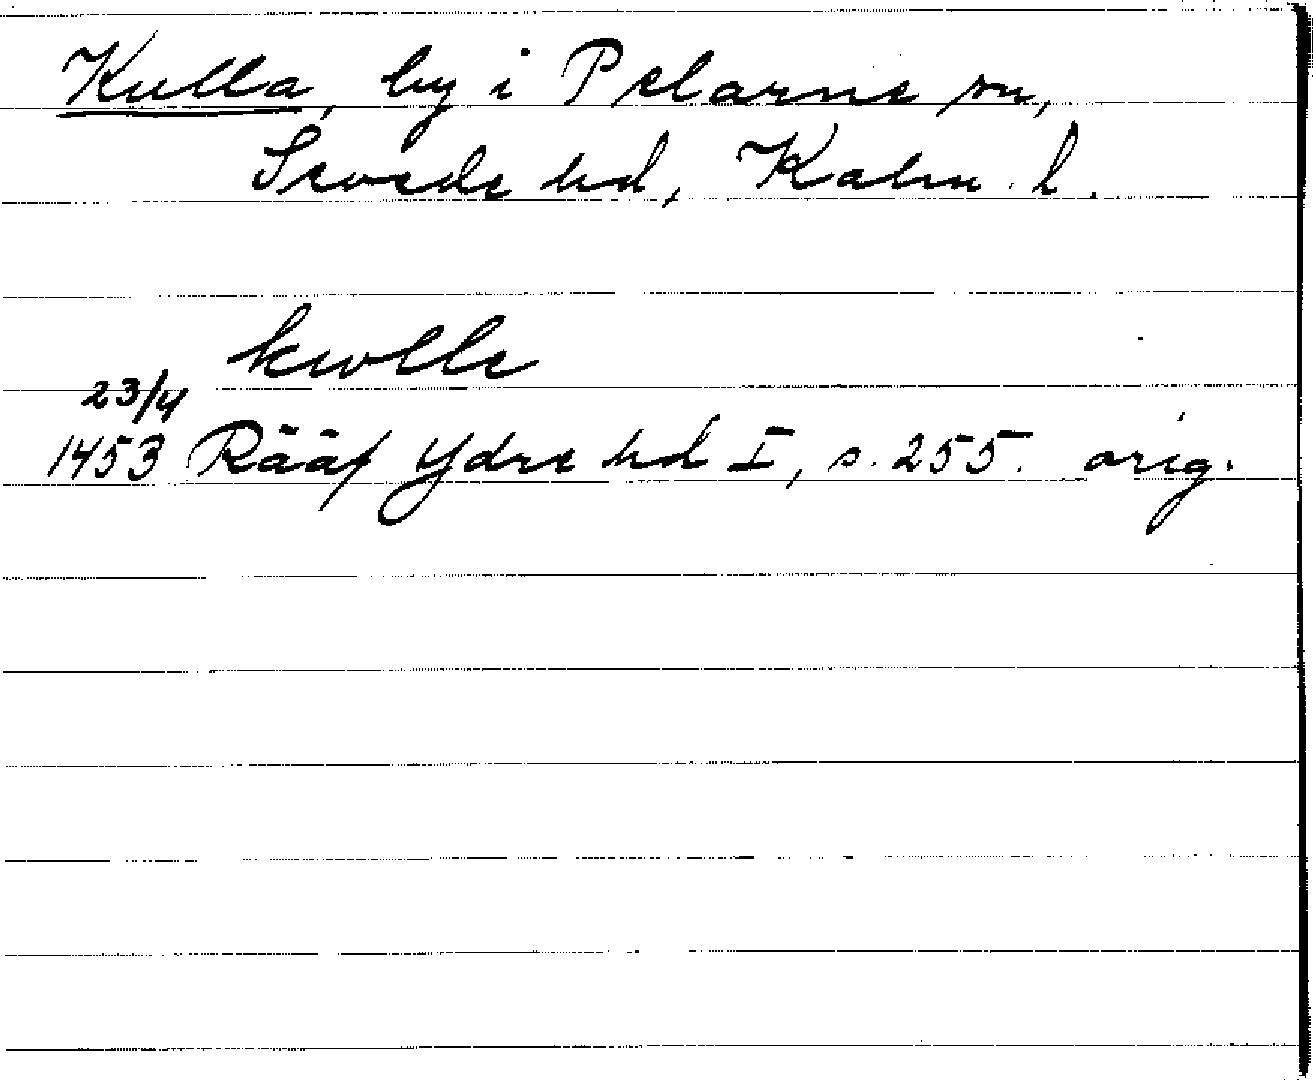 Kulla, by i Pelarne sn,
Sevede hd, Kalm. l.
kwlle
23/4
1453 Rääf Ydre hd I, s. 255. orig.